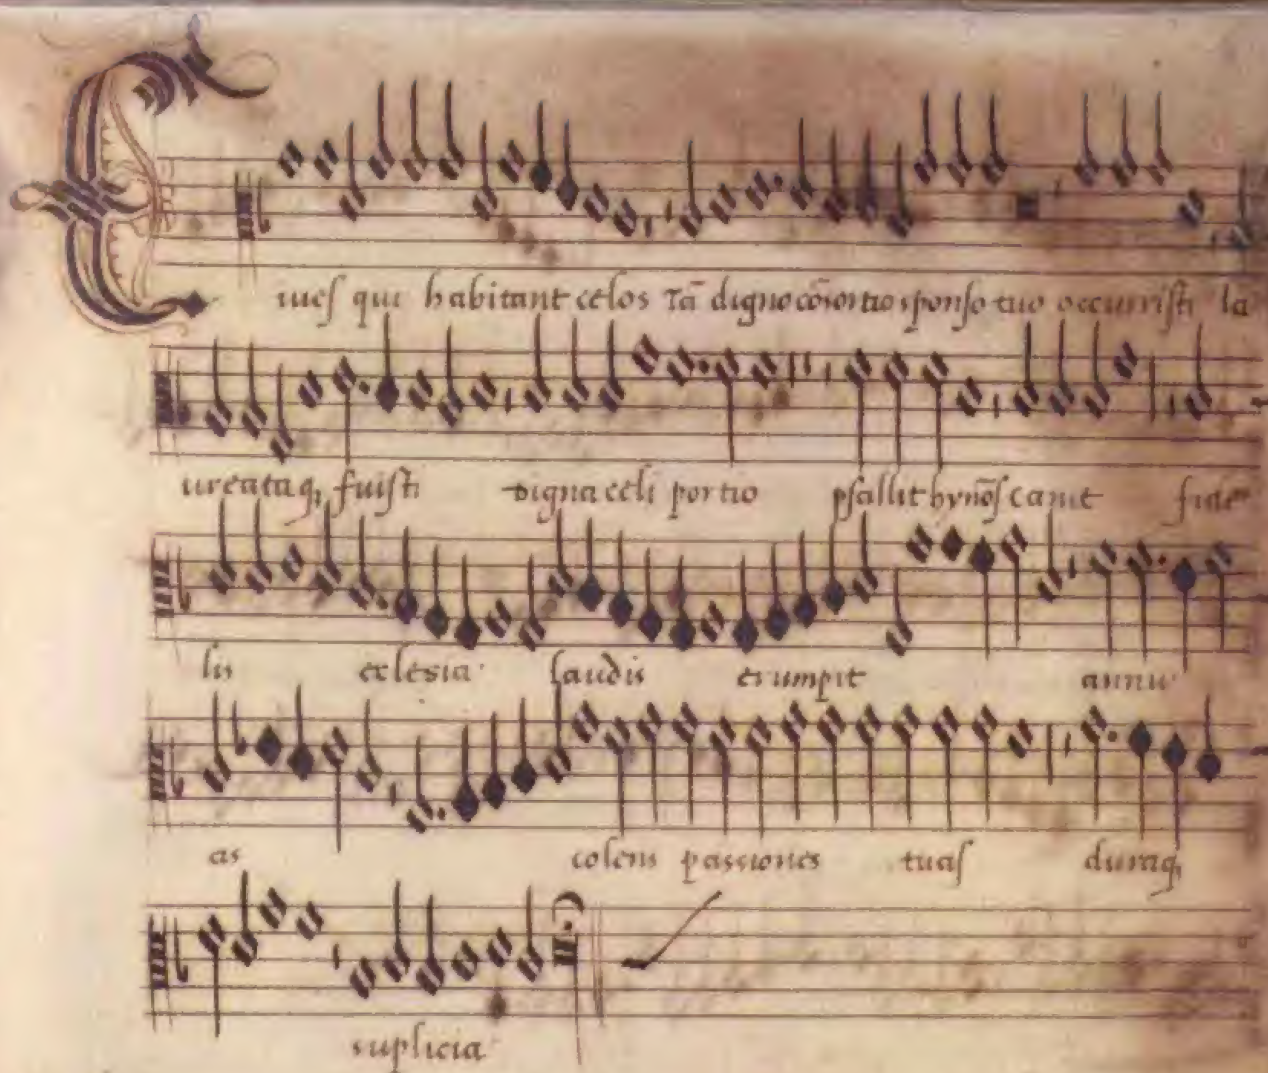 Ciues qui habitant celos Tā digno cōsortio sponso tuo occurristi la
ureataq, fuisti digna celi portio psallit hynōs canit fide
lis eclesia laudis erumpit annu
as colens passiones tuas duraq,
suplicia